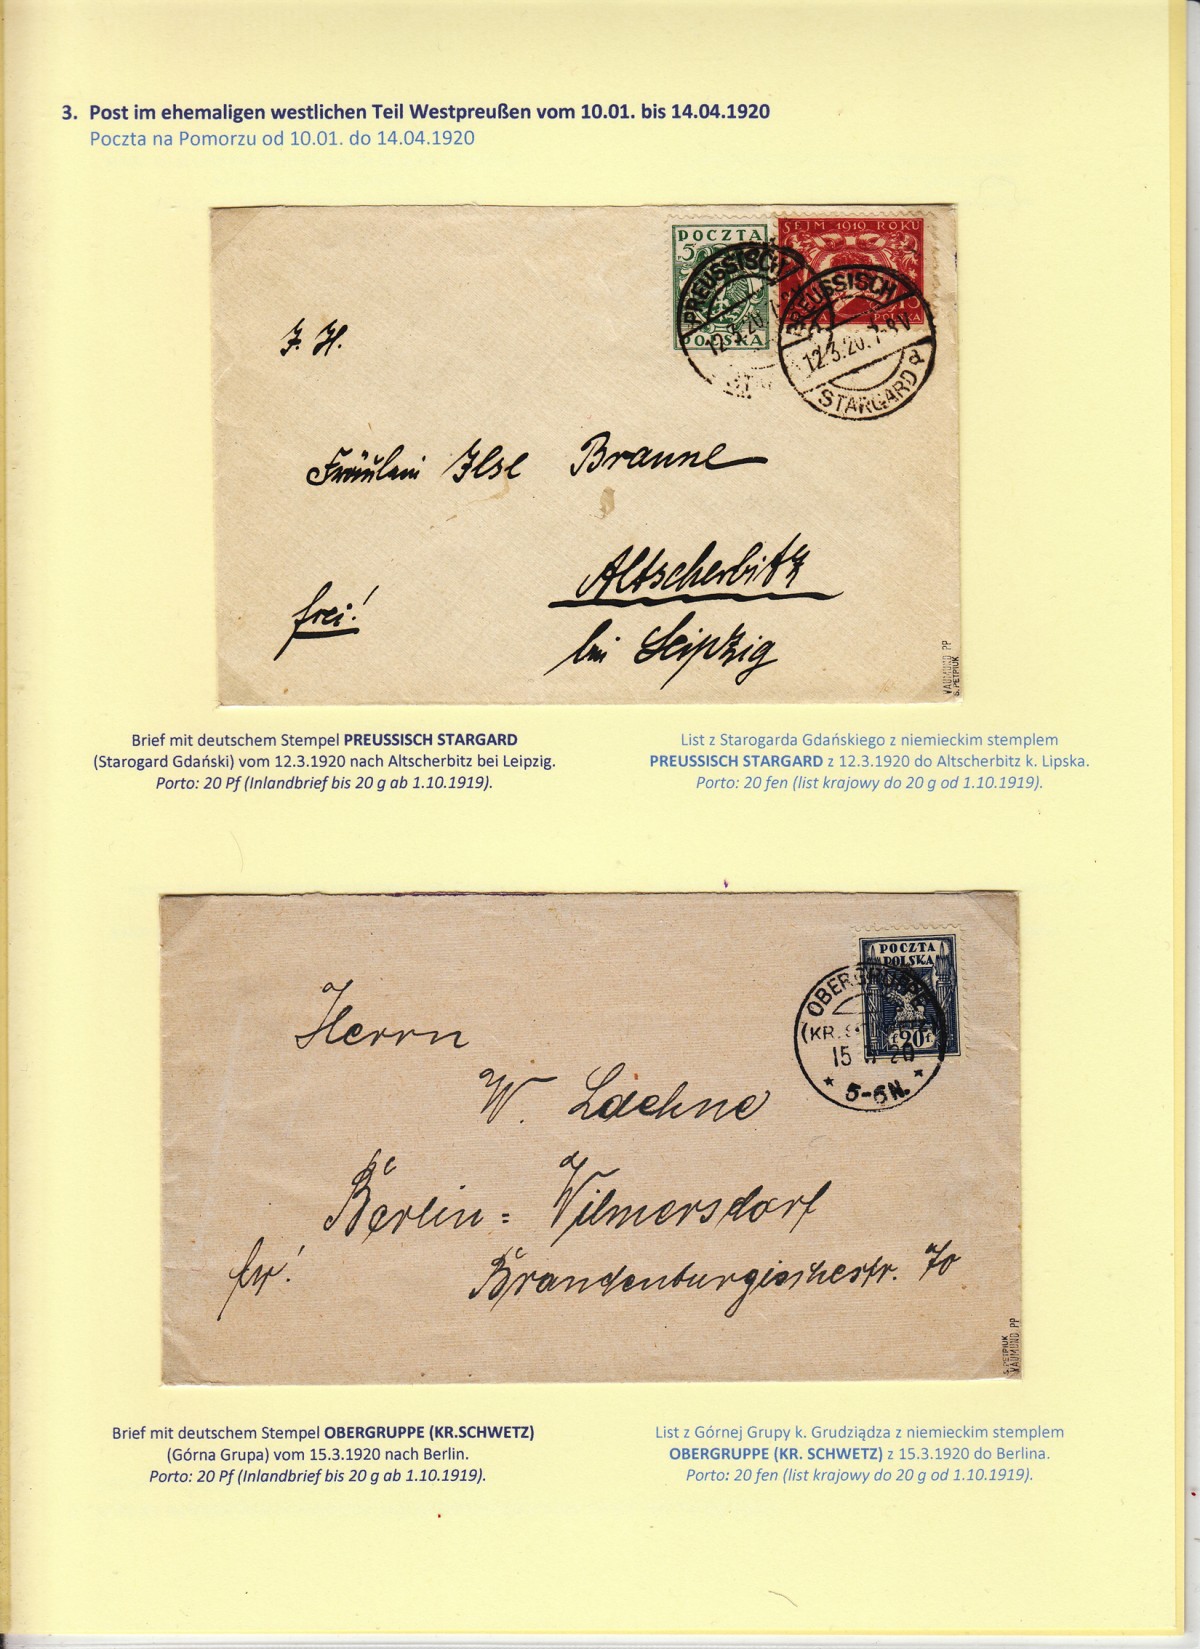 3. Post im ehemaligen westlichen Teil Westpreußen vom 10.01. bis 14.04.1920
Poczta na Pomorzu od 10.01. do 14.04.1920
POCZTA
5
POLSKA
SEJM 1919 ROKU
15
POLSKA
PREUSSISCH
12.3.20.
PREUSSISCH
12.3.20. 7-8V
STARGARD
J. H.
Fräulein Ilse Braune
Altscherbitz
frei!
bei Leipzig
VAUMUND PP
S. PETRIUK
Brief mit deutschem Stempel PREUSSISCH STARGARD
(Starogard Gdański) vom 12.3.1920 nach Altscherbitz bei Leipzig.
Porto: 20 Pf (Inlandbrief bis 20 g ab 1.10.1919).
List z Starogarda Gdańskiego z niemieckim stemplem
PREUSSISCH STARGARD z 12.3.1920 do Altscherbitz k. Lipska.
Porto: 20 fen (list krajowy do 20 g od 1.10.1919).
POCZTA
POLSKA
f 20 f
OBERGRUPPE
(KR.
15 20
5-6N.
Herrn
W. Laehne
Berlin=Wilmersdorf
fr!
Brandenburgischestr. 70
S. PETRIUK
VAUMUND PP
Brief mit deutschem Stempel OBERGRUPPE (KR.SCHWETZ)
(Górna Grupa) vom 15.3.1920 nach Berlin.
Porto: 20 Pf (Inlandbrief bis 20 g ab 1.10.1919).
List z Górnej Grupy k. Grudziądza z niemieckim stemplem
OBERGRUPPE (KR. SCHWETZ) z 15.3.1920 do Berlina.
Porto: 20 fen (list krajowy do 20 g od 1.10.1919).